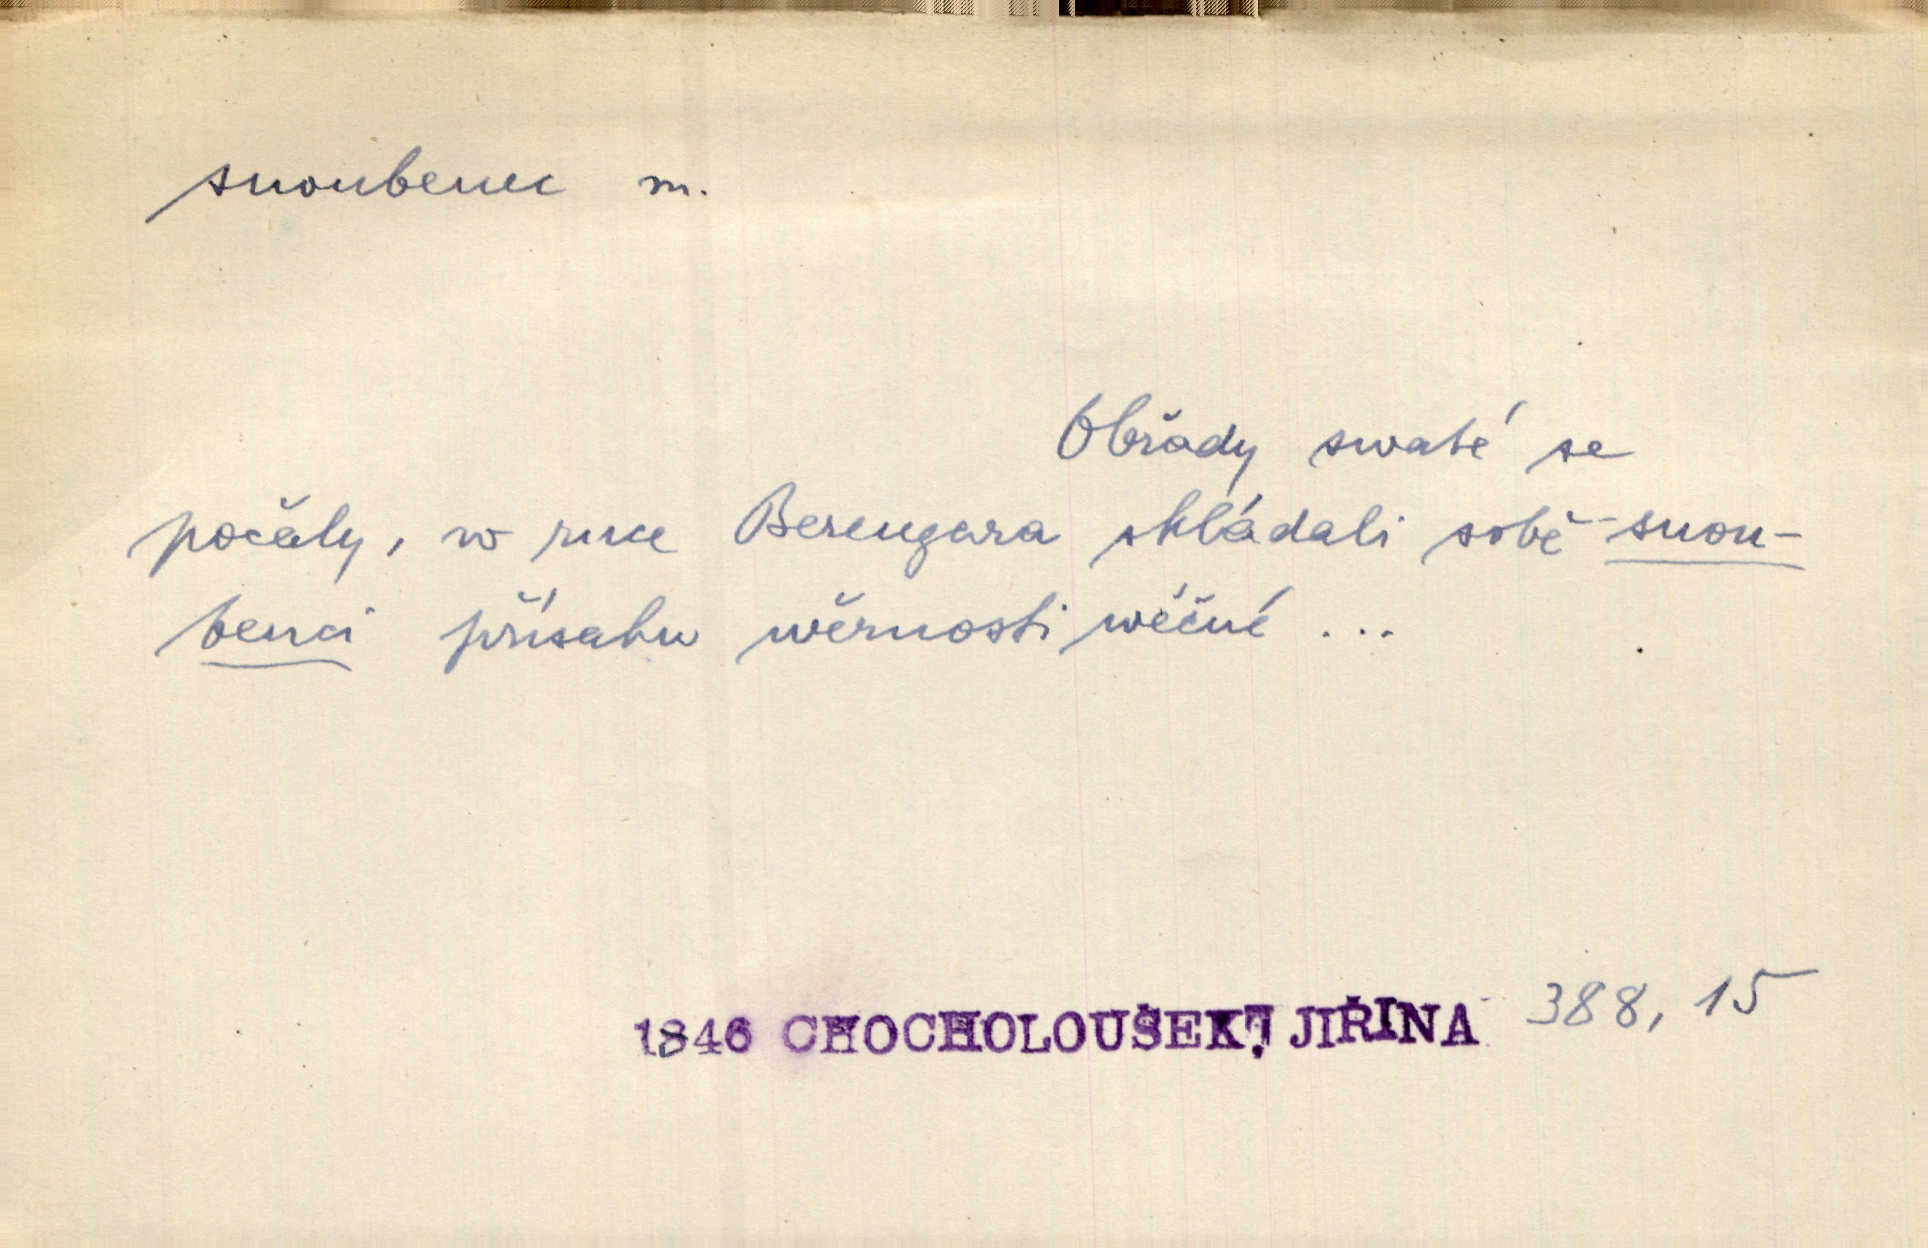 snoubenec m.
Obřady swaté se
počaly, w ruce Berengara skládali sobě snou-
benci přísahu wěrnosti wěčné ...
1846 CHOCHOLOUŠEK, JIŘINA 388, 15